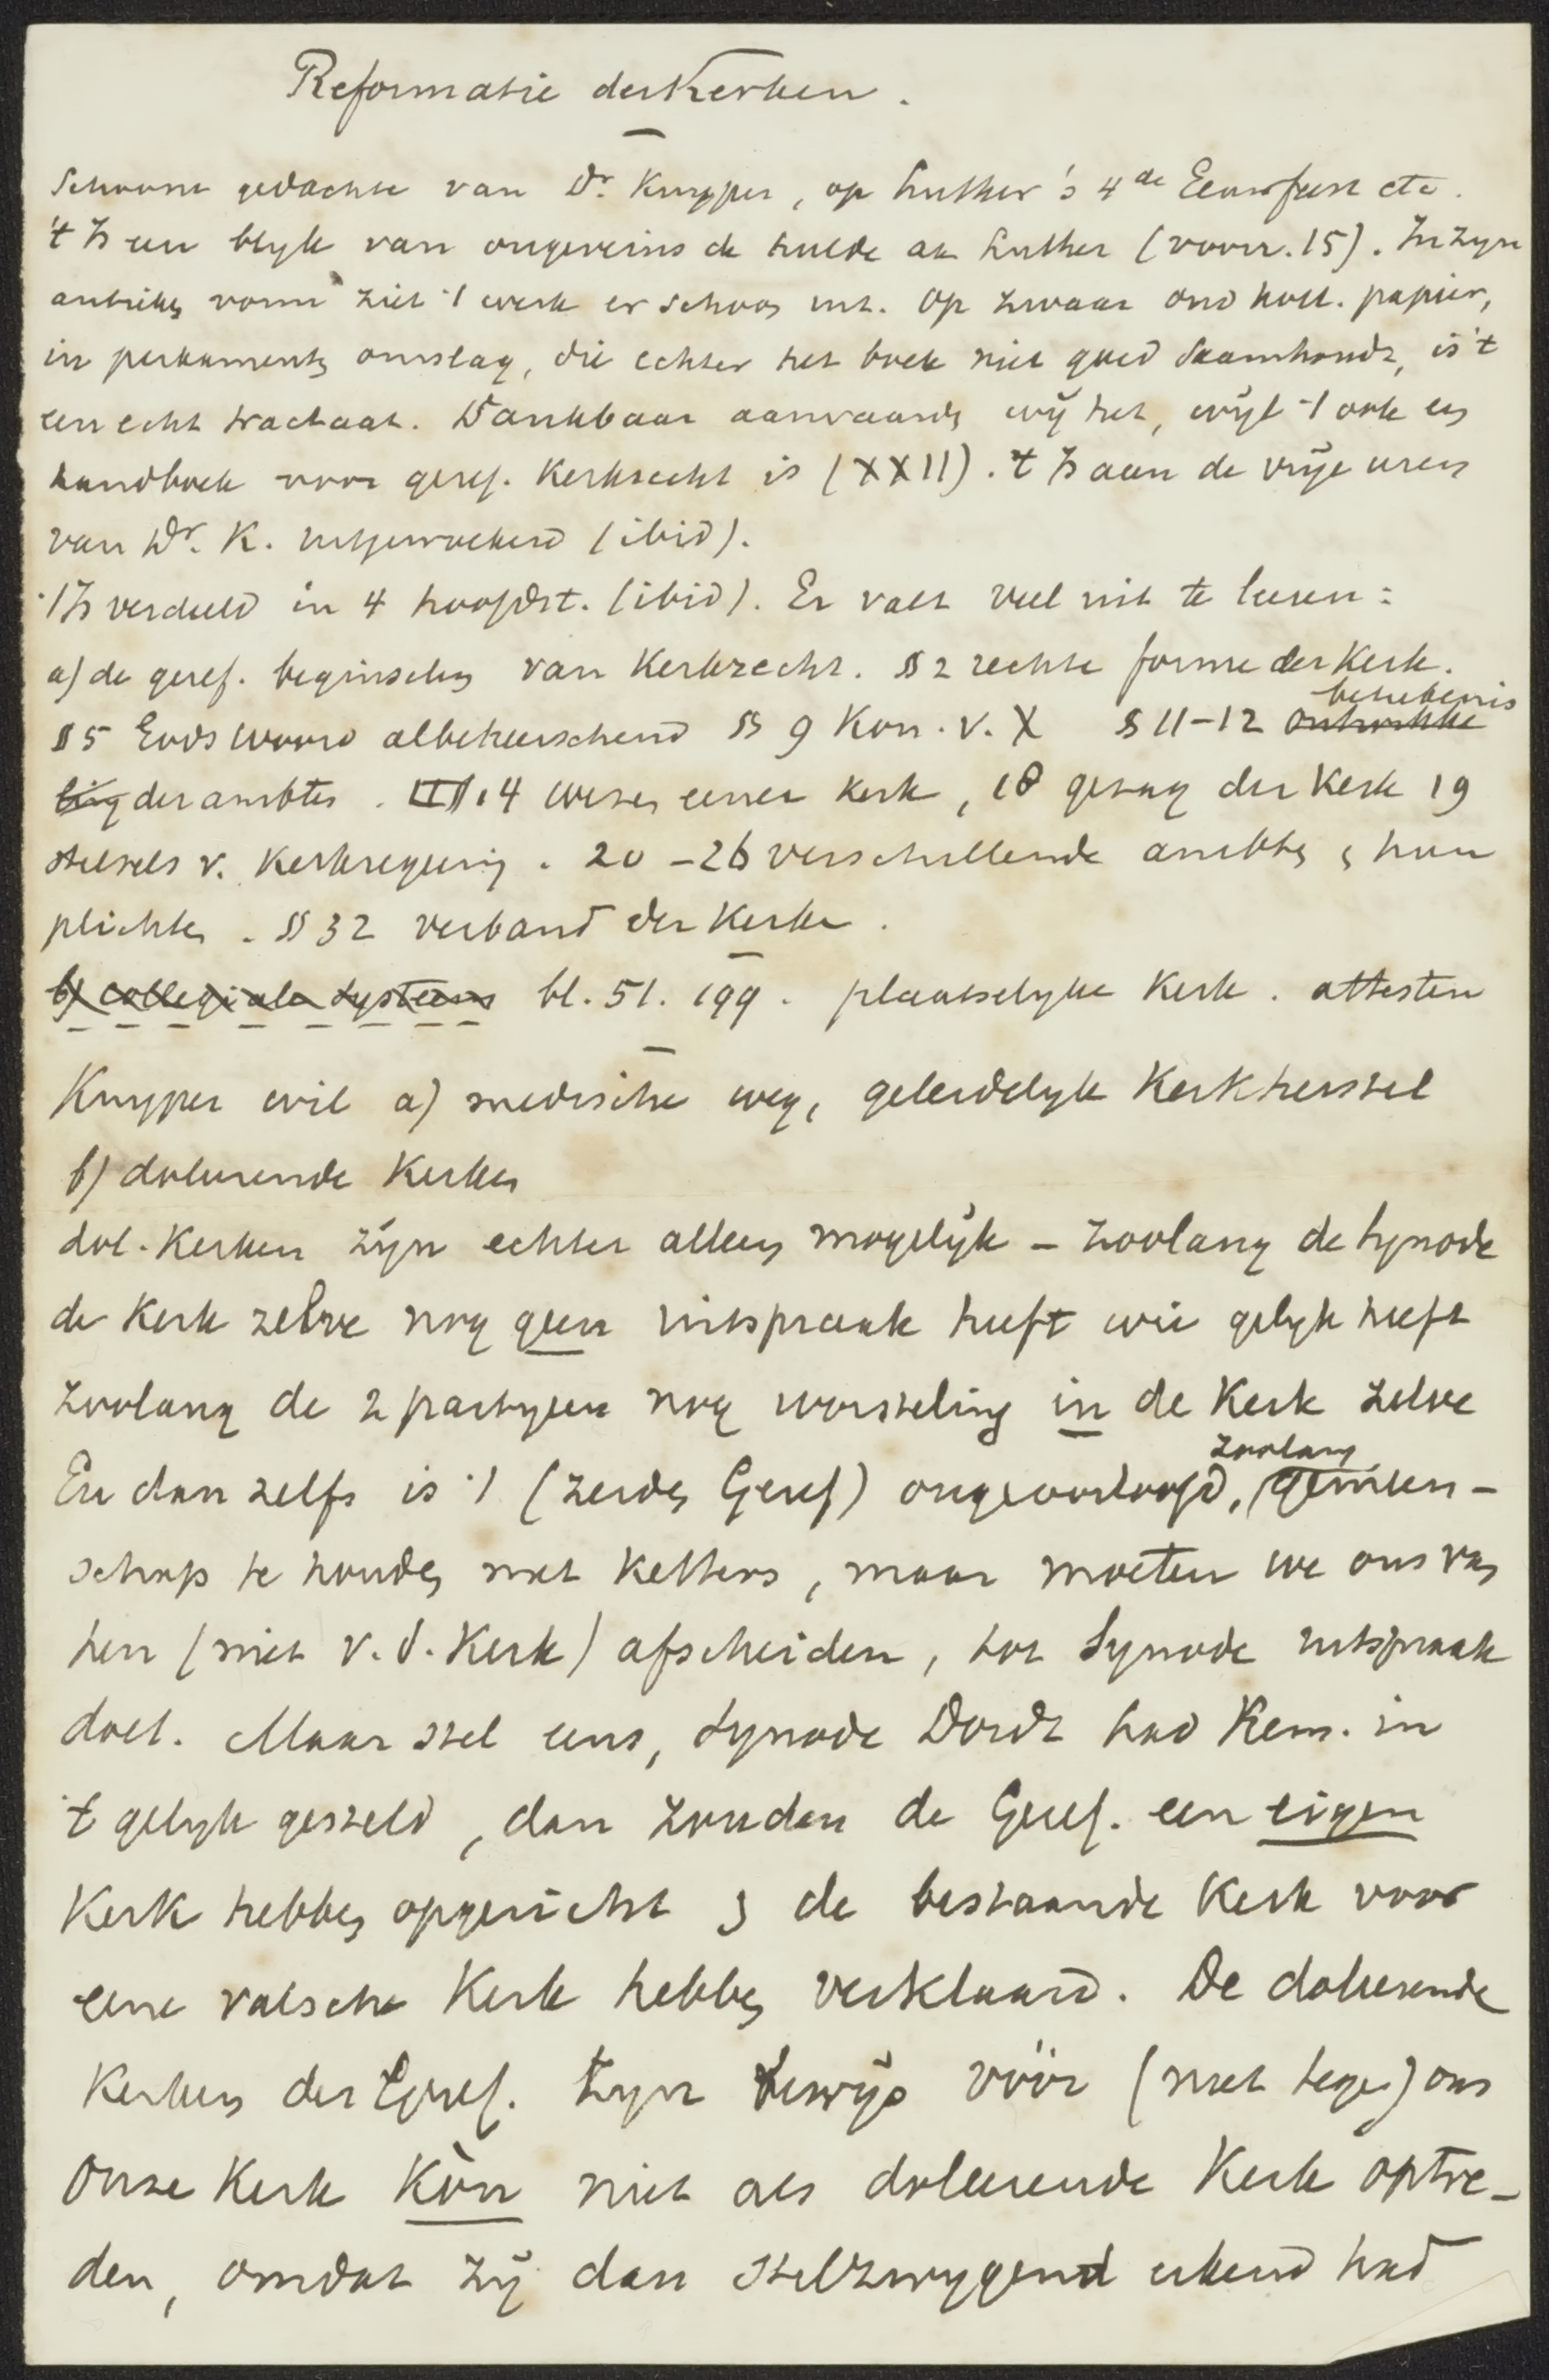 Reformatie der Kerken.
Schoone gedachte van Dr. Kuyper, op Luther's 4de Eeuwfeest etc.
't Is een blyk van ongeveinsde hulde aan Luther (voorr. 15). In zyn
antieken vorm ziet 't werk er schoon uit. Op zwaar oud holl. papier,
in perkamenten omslag, die echter het boek niet goed saamhoudt, is 't
een echt tractaat. Dankbaar aanvaarden wij het, wijl 't ook een
handboek voor geref. Kerkrecht is (XXII). 't Is aan de vrije uren
van Dr. K. uitgewoekerd (ibid).
't Is verdeeld in 4 hoofdst. (ibid). Er valt veel uit te leeren:
a) de geref. beginselen van Kerkrecht. § 2 rechte forme der Kerk.
§ 5 Gods woord albeheerschend § 9 Kon. v. X § 11-12 betrekenis
der ambten. 14 wezen eener kerk, 18 gezag der Kerk 19
stelsels v. Kerkregering. 20-26 verschillende ambten & hun
plichten. § 32 verband der Kerken.
b) collegiale systeem bl. 51. 199. plaatselyke Kerk. attesten
Kuyper wil a) medische weg, geleidelyk Kerkherstel
b) doleerende Kerken
dol. Kerken zijn echter alleen mogelijk - zoolang de Synode
de Kerk zelve nog geen uitspraak heeft wie gelyk heeft
zoolang de 2 partyen nog worsteling in de Kerk zelve
En dan zelfs is 't (zeiden Geref) ongeoorloofd, zoolang gemeen-
schap te houden met ketters, maar moeten we ons van
hen (niet v. d. Kerk) afscheiden, tot Synode uitspraak
doet. Maar stel eens, Synode Dordt had Rem. in
't gelyk gesteld, dan zouden de Geref. een eigen
Kerk hebben opgericht & de bestaande Kerk voor
eene valsche Kerk hebben verklaard. De doleerende
Kerken der Geref. zyn bewijs vóór (niet tegen) ons
Onze Kerk kòn niet als doleerende Kerk optre-
den, omdat zij dan stilzwygend erkend had